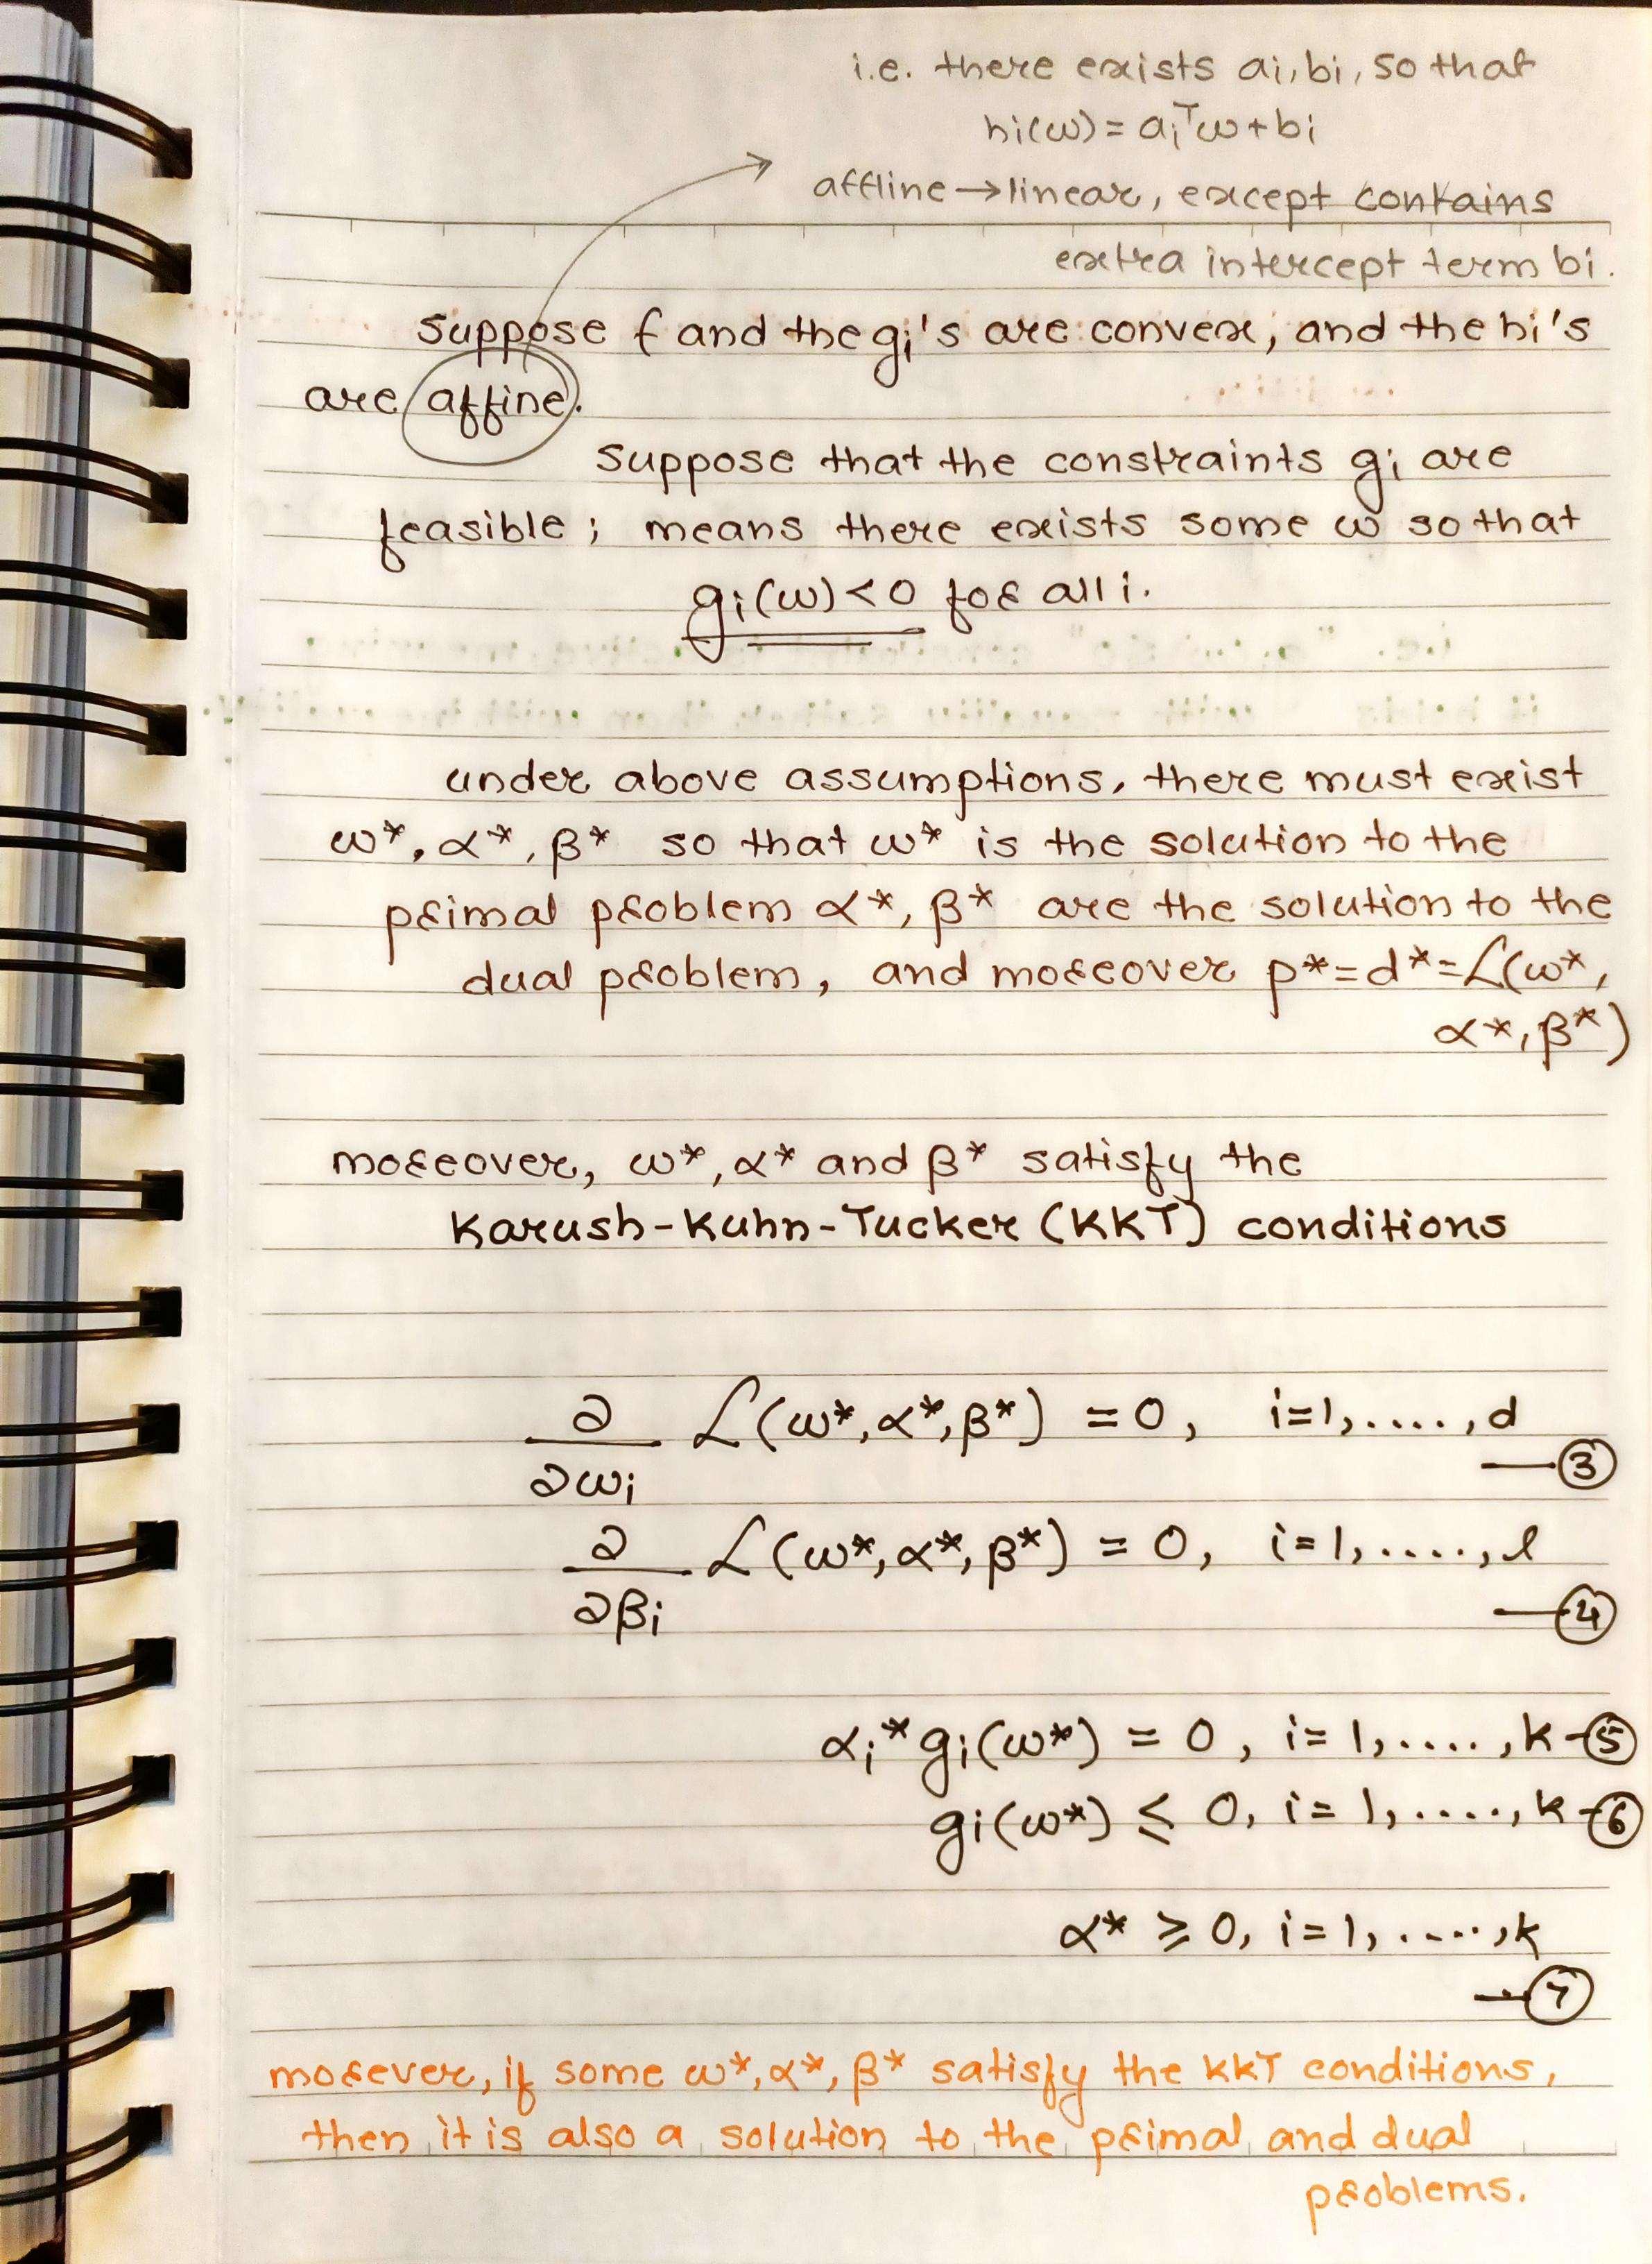 i.e. there exists ai, bi, so that
hi(ω) = aiᵀω + bi
affline → linear, except contains
extra intercept term bi.
suppose f and the gi's are convex, and the hi's
are affine.
suppose that the constraints gi are
feasible; means there exists some ω so that
gi(ω) < 0 for all i.
under above assumptions, there must exist
ω*, α*, β* so that ω* is the solution to the
primal problem α*, β* are the solution to the
dual problem, and moreover p* = d* = ℒ(ω*,
α*, β*)
moreover, ω*, α* and β* satisfy the
Karush-Kuhn-Tucker (KKT) conditions
∂/∂ωi ℒ(ω*, α*, β*) = 0, i=1,....,d
—③
∂/∂βi ℒ(ω*, α*, β*) = 0, i=1,....,l
—④
αi* gi(ω*) = 0, i=1,....,k —⑤
gi(ω*) ≤ 0, i=1,....,k —⑥
α* ≥ 0, i=1,....,k
—⑦
morever, if some ω*, α*, β* satisfy the KKT conditions,
then it is also a solution to the primal and dual
problems.